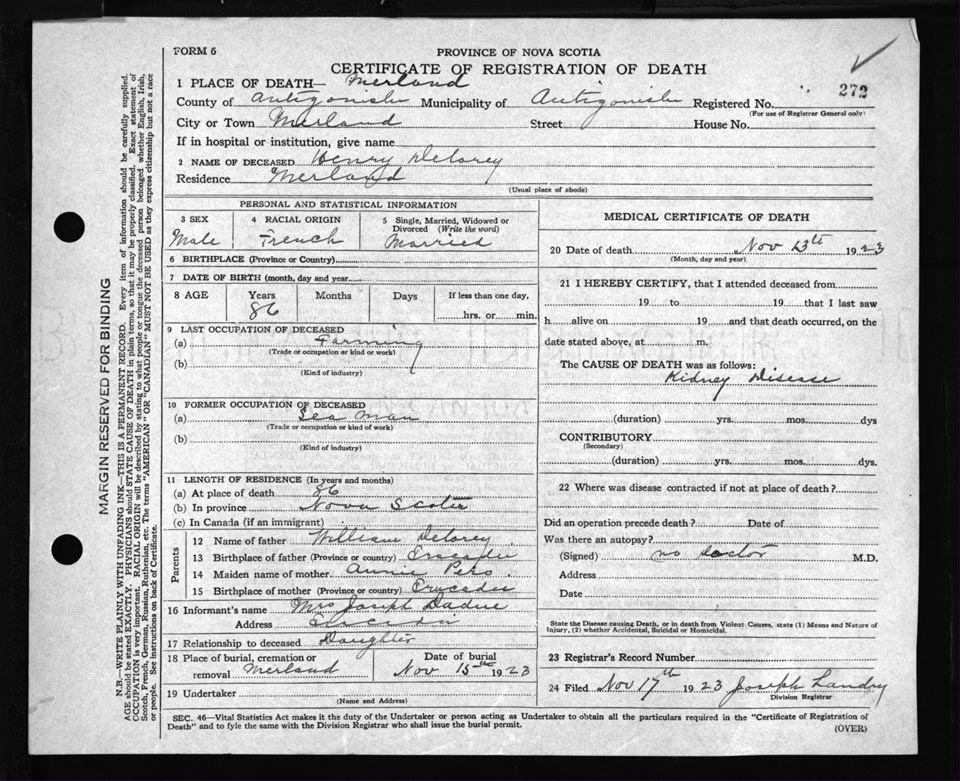 FORM 6
PROVINCE OF NOVA SCOTIA
CERTIFICATE OF REGISTRATION OF DEATH
1 PLACE OF DEATH— Merland
272
County of Antigonish Municipality of Antigonish Registered No.
(For use of Registrar General only)
City or Town Merland Street House No.
If in hospital or institution, give name
2 NAME OF DECEASED Henry Delorey
Residence Merland
(Usual place of abode)
PERSONAL AND STATISTICAL INFORMATION
3 SEX 4 RACIAL ORIGIN 5 Single, Married, Widowed or
Divorced (Write the word)
Male French Married
6 BIRTHPLACE (Province or Country)
7 DATE OF BIRTH (month, day and year
8 AGE Years Months Days If less than one day,
86 hrs. or min.
9 LAST OCCUPATION OF DECEASED
(a) Farming
(Trade or occupation or kind or work)
(b)
(Kind of industry)
10 FORMER OCCUPATION OF DECEASED
(a) Sea Man
(Trade or occupation or kind of work)
(b)
(Kind of industry)
11 LENGTH OF RESIDENCE (In years and months)
(a) At place of death 86
(b) In province Nova Scotia
(c) In Canada (if an immigrant)
Parents
12 Name of father William Delorey
13 Birthplace of father (Province or country)
14 Maiden name of mother Annie
15 Birthplace of mother (Province or country)
16 Informant's name Mrs Joseph
Address
17 Relationship to deceased Daughter
18 Place of burial, cremation or
removal Merland
Date of burial
Nov 15th 1923
19 Undertaker
(Name and Address)
MEDICAL CERTIFICATE OF DEATH
20 Date of death Nov 13th 1923
(Month, day and year)
21 I HEREBY CERTIFY, that I attended deceased from
19 to 19 that I last saw
h alive on 19 and that death occurred, on the
date stated above, at m.
The CAUSE OF DEATH was as follows:
Kidney Disease
(duration) yrs. mos. dys
CONTRIBUTORY
(Secondary)
(duration) yrs. mos. dys.
22 Where was disease contracted if not at place of death?
Did an operation precede death? Date of
Was there an autopsy?
(Signed) no doctor M.D.
Address
Date
State the Disease causing Death, or in death from Violent Causes, state (1) Means and Nature of
Injury, (2) whether Accidental, Suicidal or Homicidal.
23 Registrar's Record Number
24 Filed Nov 17th 1923 Joseph Landry
Division Registrar
SEC. 46—Vital Statistics Act makes it the duty of the Undertaker or person acting as Undertaker to obtain all the particulars required in the "Certificate of Registration of
Death" and to fyle the same with the Division Registrar who shall issue the burial permit.
(OVER)
MARGIN RESERVED FOR BINDING
N.B.—WRITE PLAINLY WITH UNFADING INK—THIS IS A PERMANENT RECORD. Every item of information should be carefully supplied.
AGE should be stated EXACTLY. PHYSICIANS should STATE CAUSE OF DEATH in plain terms, so that it may be properly classified. Exact statement of
OCCUPATION is very important. RACIAL ORIGIN will be described by stating to what people or tongue the deceased person belonged whether English, Irish,
Scotch, French, German, Russian, Ruthenian, etc. The terms "AMERICAN" OR "CANADIAN" MUST NOT BE USED as they express citizenship but not a race
or people. See instructions on back of Certificate.